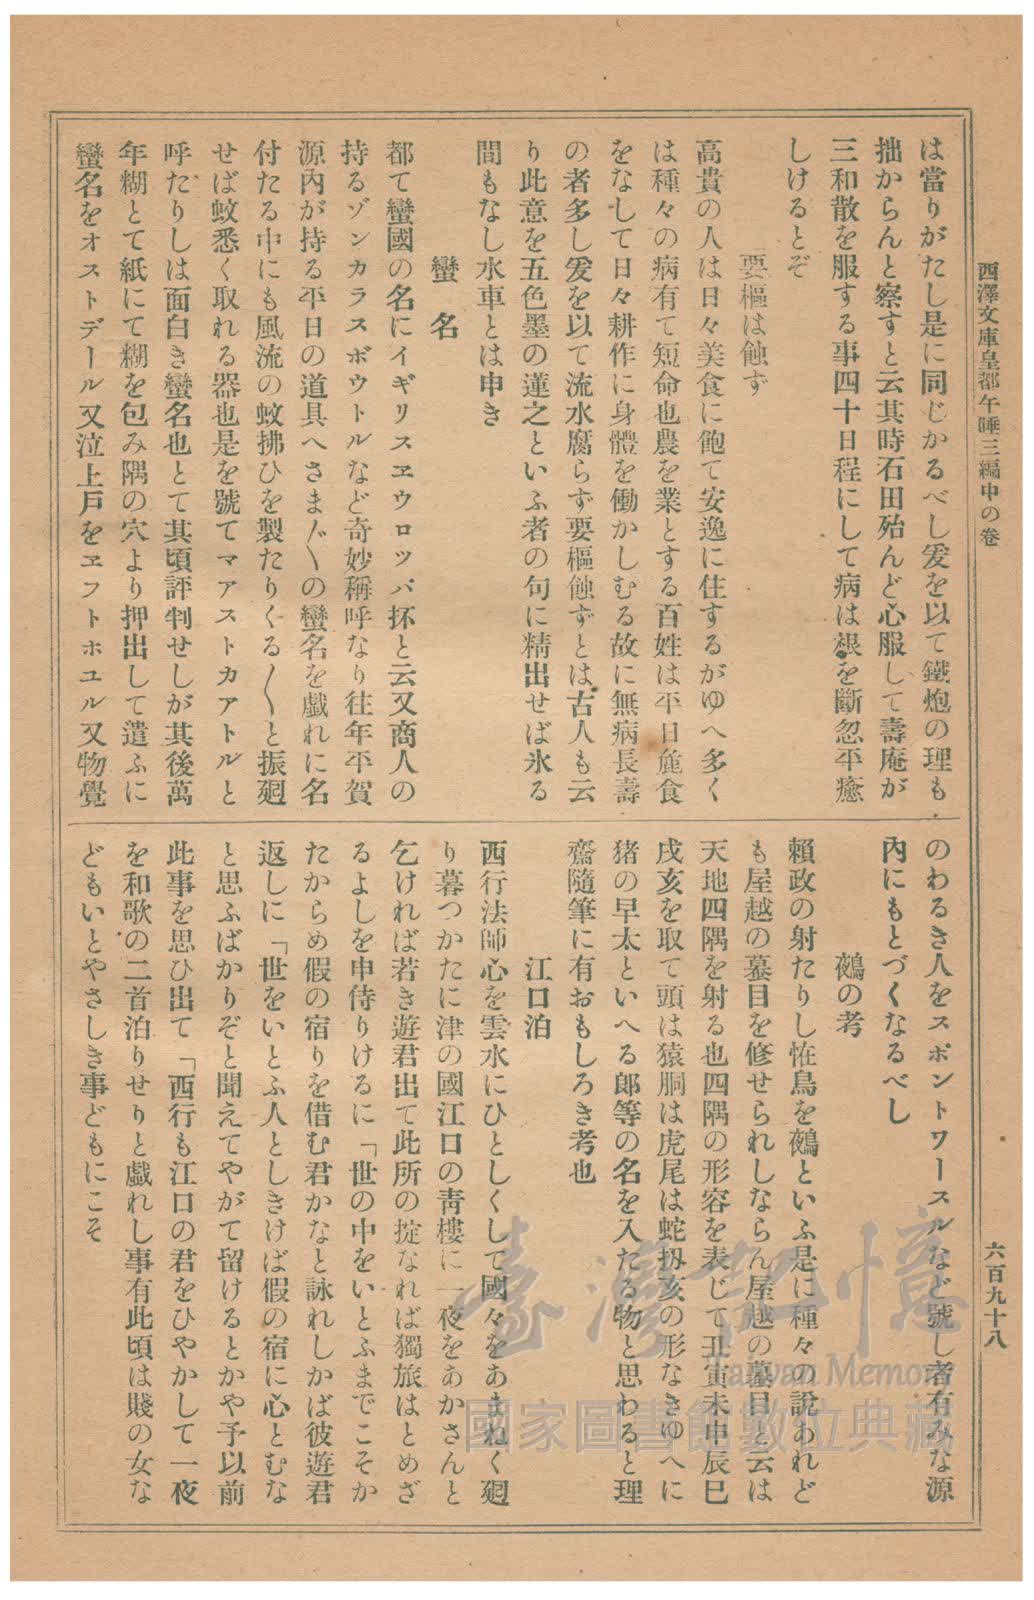 西澤文庫皇都午睡三編中の卷
六百九十八
は當りがたし是に同じかるべし爰を以て鐵炮の理も
拙からんと察すと云其時石田殆んど心服して壽庵が
三和散を服する事四十日程にして病は根を斷忽平癒
しけるとぞ
要樞は蝕ず
高貴の人は日々美食に飽て安逸に住するがゆへ多く
は種々の病有て短命也農を業とする百姓は平日麁食
をなして日々耕作に身體を働かしむる故に無病長壽
の者多し爰を以て流水腐らず要樞蝕ずとは古人も云
り此意を五色墨の蓮之といふ者の句に精出せば氷る
間もなし水車とは申き
蠻名
都て蠻國の名にイギリスヱウロツパ抔と云又商人の
持るゾンカラスボウトルなど奇妙稱呼なり往年平賀
源內が持る平日の道具へさま〴〵の蠻名を戯れに名
付たる中にも風流の蚊拂ひを製たりくる〳〵と振廻
せば蚊悉く取れる器也是を號てマアストカアトルと
呼たりしは面白き蠻名也とて其頃評判せしが其後萬
年糊とて紙にて糊を包み隅の穴より押出して遣ふに
蠻名をオストデール又泣上戶をヱフトホユル又物覺
のわるき人をスポントワースルなど號し者有みな源
內にもとづくなるべし
鵺の考
賴政の射たりし恠鳥を鵺といふ是に種々の說あれど
も屋越の蟇目を修せられしならん屋越の蟇目と云は
天地四隅を射る也四隅の形容を表じて丑寅未申辰巳
戌亥を取て頭は猿胴は虎尾は蛇扨亥の形なきゆへに
猪の早太といへる郎等の名を入たる物と思わると理
齋隨筆に有おもしろき考也
江口泊
西行法師心を雲水にひとしくして國々をあまねく廻
り暮つかたに津の國江口の靑樓に一夜をあかさんと
乞ければ若き遊君出て此所の掟なれば獨旅はとめざ
るよしを申侍りけるに「世の中をいとふまでこそか
たからめ假の宿りを借む君かなと詠れしかば彼遊君
返しに「世をいとふ人としきけば假の宿に心とむな
と思ふばかりぞと聞えてやがて留けるとかや予以前
此事を思ひ出て「西行も江口の君をひやかして一夜
を和歌の二首泊りせりと戯れし事有此頃は賤の女な
どもいとやさしき事どもにこそ
臺灣記憶
Taiwan Memory
國家圖書館數位典藏